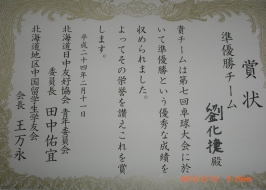 賞状
準優勝チーム
劉化捷殿
貴チームは第七回卓球大会に於
いて準優勝という優秀な成績を
収められました。
よってその栄誉を讃えこれを賞
します。
平成二十四年二月十一日
北海道日中友好協会 青年委員会
委員長 田中佑宜
北海道地区中国留学生学友会
会長 王万永